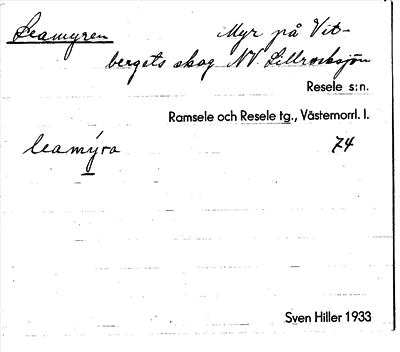 Leamyren Myr på Vit-
bergets skog NV. Lillrosksjön
Resele s:n.
Ramsele och Resele tg., Västernorrl. l.
leamýra 74
Sven Hiller 1933